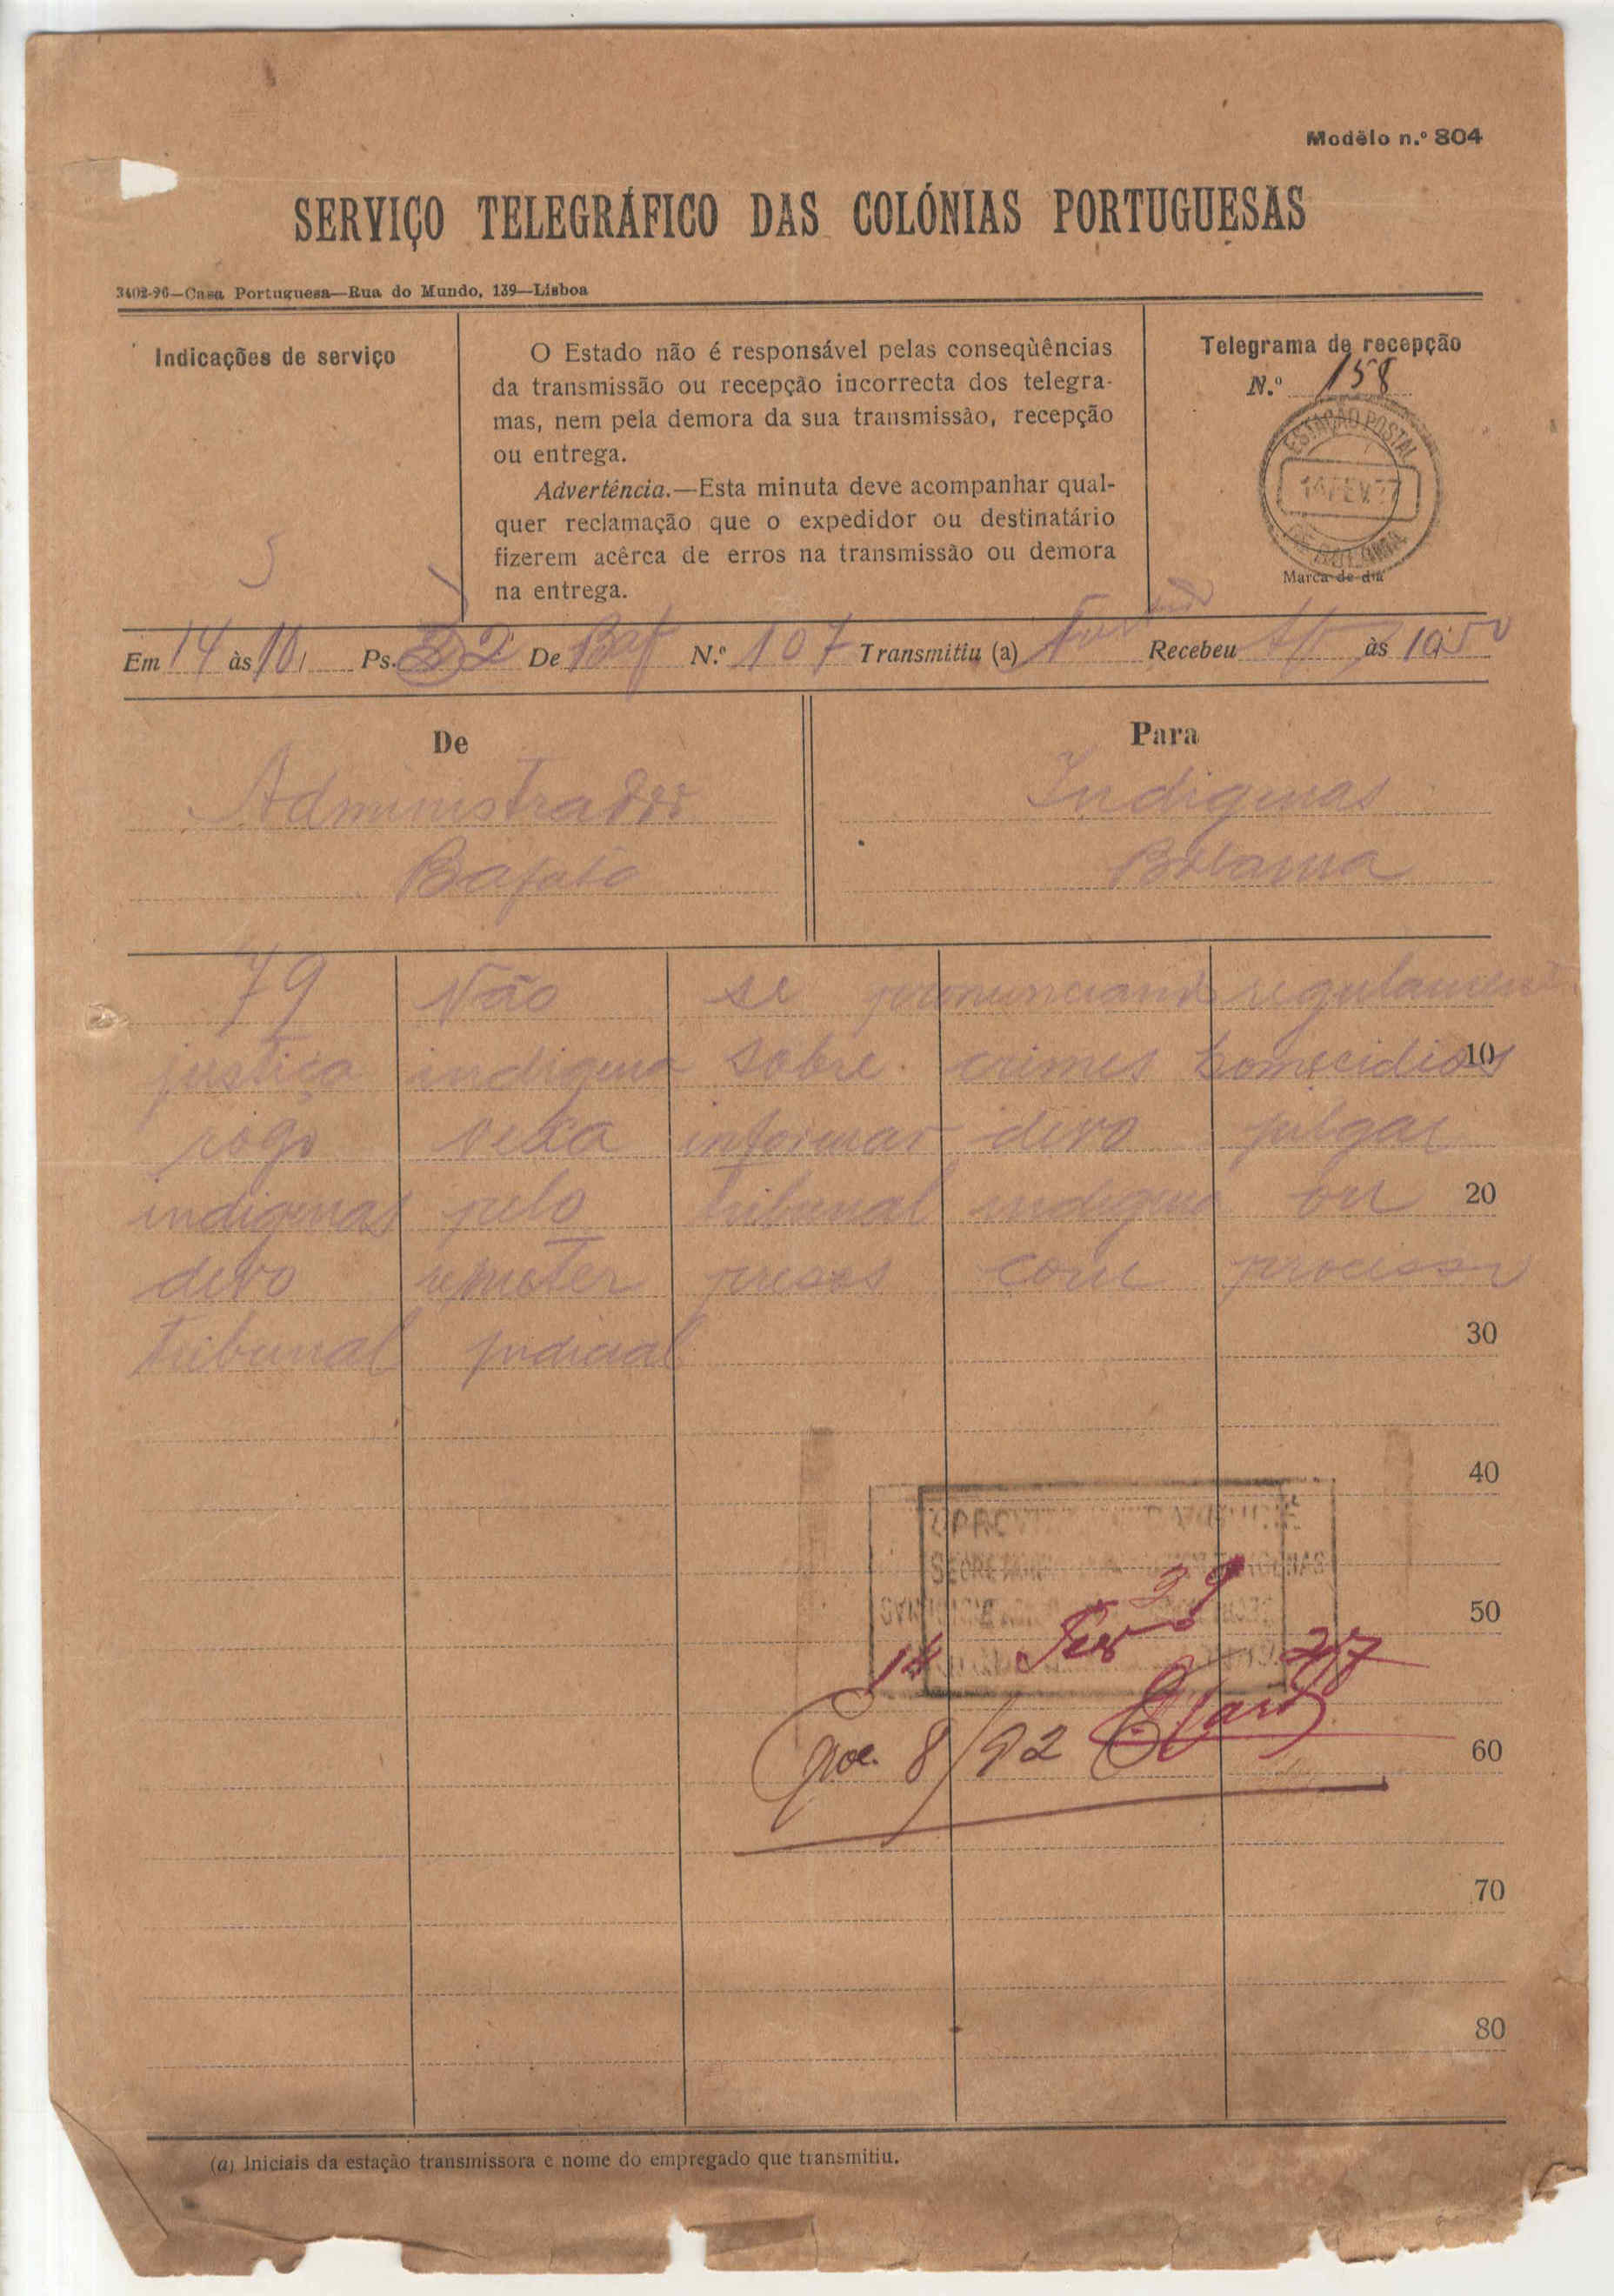 Modêlo n.º 804
SERVIÇO TELEGRÁFICO DAS COLÓNIAS PORTUGUESAS
3402-26—Casa Portuguesa—Rua do Mundo, 139—Lisboa
Indicações de serviço
O Estado não é responsável pelas conseqùências
da transmissão ou recepção incorrecta dos telegra-
mas, nem pela demora da sua transmissão, recepção
ou entrega.
Advertência.—Esta minuta deve acompanhar qual-
quer reclamação que o expedidor ou destinatário
fizerem acêrca de erros na transmissão ou demora
na entrega.
Telegrama de recepção
N.º 158
ESTAÇÃO POSTAL
14 FEV. 27
Marca de dia
Em 14 às 10 Ps. 22 De Baf N.º 107 Transmitiu (a) Recebeu às 10,50
De
Administrador
Bafata
Para
Indigenas
Bolama
79 Não se pronunciand regulament
justiça indigena sobre crimes homecidios 10
rogo vexa informar devo julgar
indigenas pelo tribunal indigena ou 20
devo remeter presos com processo
30
tribunal judicial
40
50
39
14 Fevº 27
Proc. 8/92
60
70
80
(a) Iniciais da estação transmissora e nome do empregado que transmitiu.